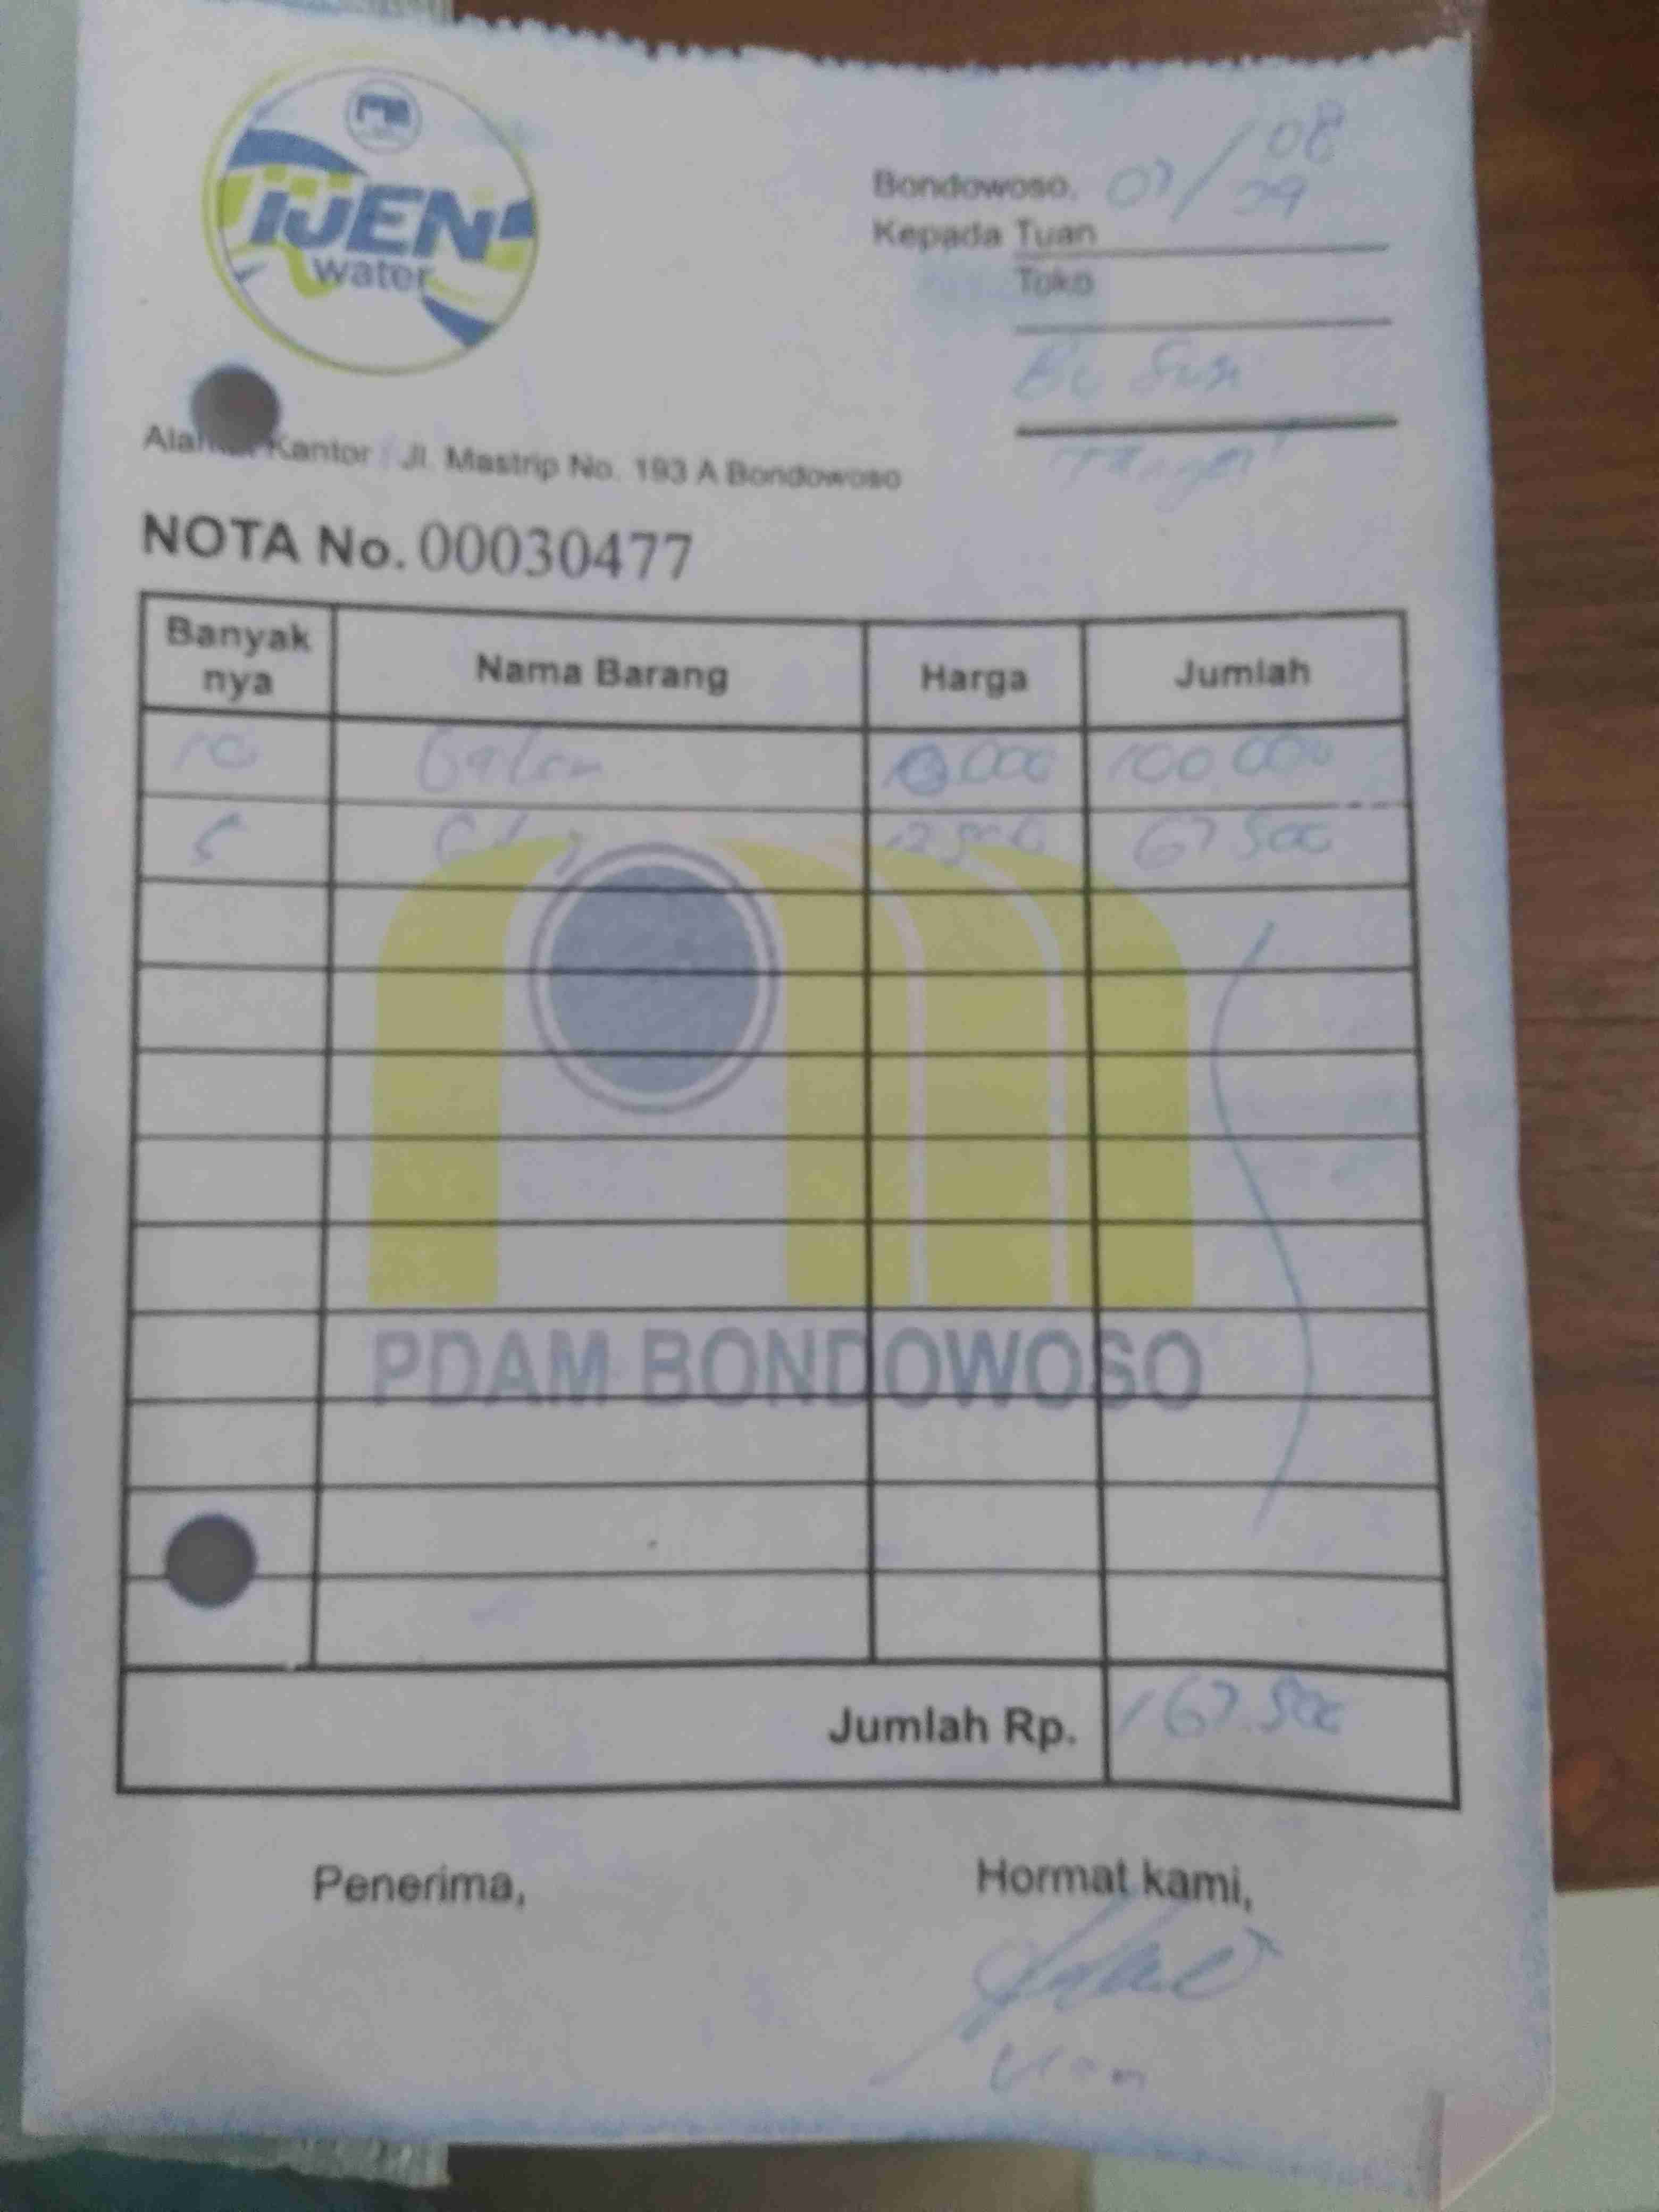 IJEN
water
Bondowoso, 07/08
Kepada Tuan
Toko
Bu Susi
Alamat Kantor : Jl. Mastrip No. 193 A Bondowoso
NOTA No. 00030477
Banyak nya Nama Barang Harga Jumlah
10 Galon 10.000 100.000
5 67.500
PDAM BONDOWOSO
Jumlah Rp. 167.500
Penerima, Hormat kami,